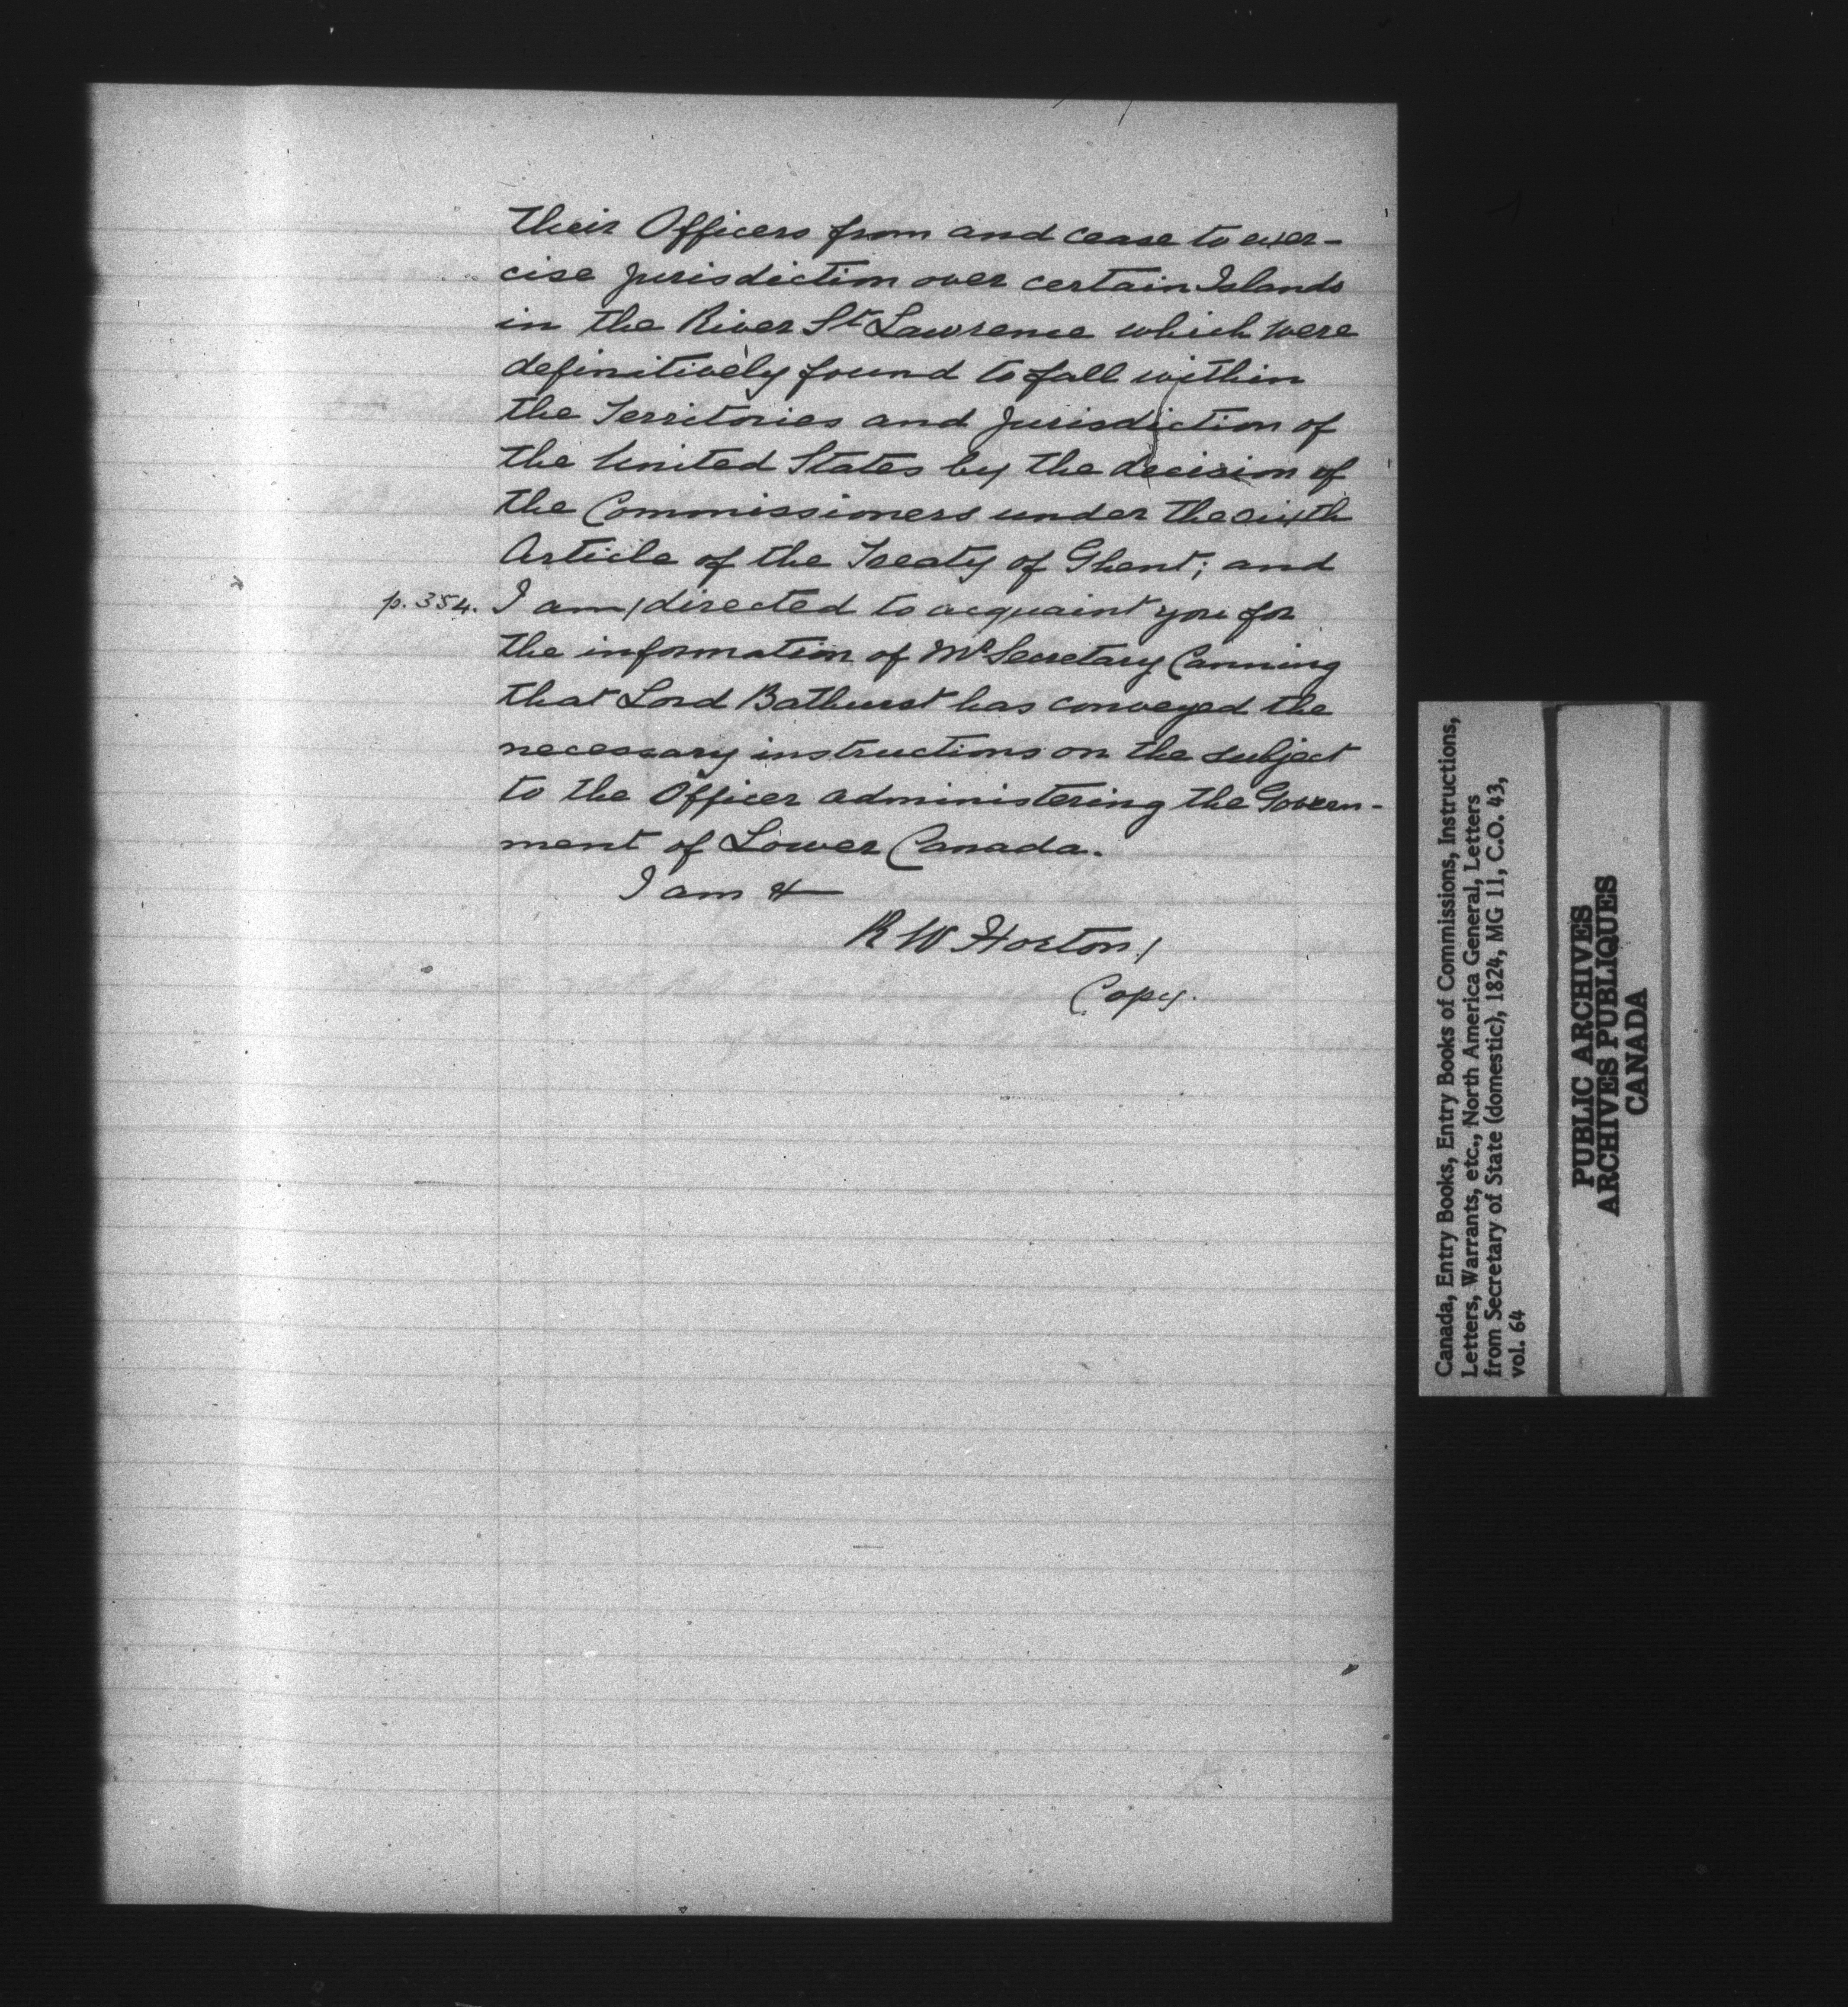 their Officers from and cease to exer-
cise jurisdiction over certain Islands
in the River St Lawrence which were
definitively found to fall within
the Territories and Jurisdiction of
the United States by the decision of
the Commissioners under the sixth
Article of the Treaty of Ghent; and
p. 354. I am / directed to acquaint you for
the information of Mr Secretary Canning
that Lord Bathurst has conveyed the
necessary instructions on the subject
to the Officer administering the Govern-
ment of Lower Canada.
I am &
R W Horton /
Copy.
Canada, Entry Books, Entry Books of Commissions, Instructions,
Letters, Warrants, etc., North America General, Letters
from Secretary of State (domestic), 1824, MG 11, C.O. 43,
vol. 64
PUBLIC ARCHIVES
ARCHIVES PUBLIQUES
CANADA